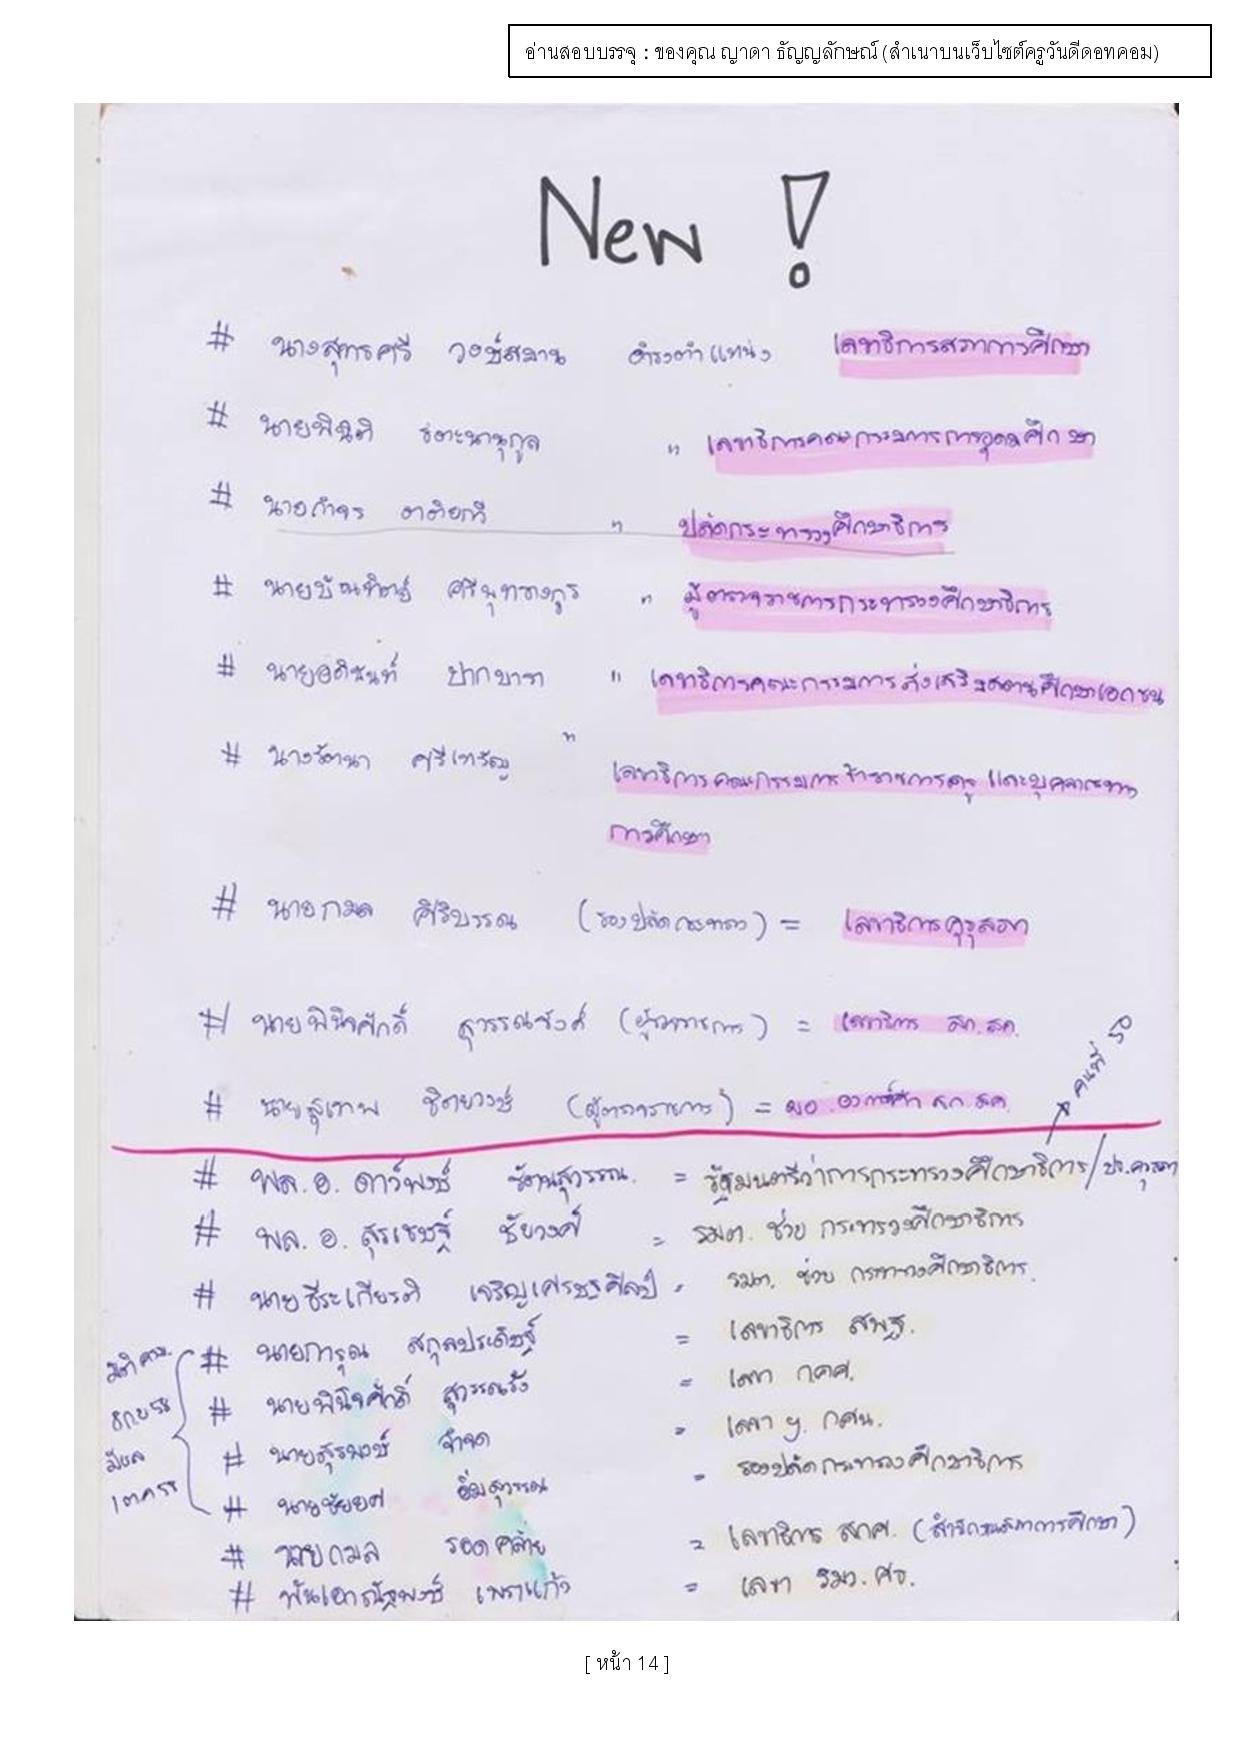 อ่านสอบบรรจุ : ของคุณ ญาดา ธัญญลักษณ์ (สำเนาบนเว็บไซต์ครูวันดีดอทคอม)
New !
# นางสุทธศรี วงษ์สมาน ดำรงตำแหน่ง เลขาธิการสภาการศึกษา
# นายพินิติ รตะนานุกูล " เลขาธิการคณะกรรมการการอุดมศึกษา
# นายกำจร ตติยกวี " ปลัดกระทรวงศึกษาธิการ
# นายบัณฑิตย์ ศรีพุทธางกูร " ผู้ตรวจราชการกระทรวงศึกษาธิการ
# นายอดินันท์ ปากบารา " เลขาธิการคณะกรรมการส่งเสริมสถานศึกษาเอกชน
# นางรัตนา ศรีเหรัญ " เลขาธิการคณะกรรมการข้าราชการครู และบุคลากรทาง
การศึกษา
# นายกมล ศิริบรรณ (รองปลัดกระทรวง) = เลขาธิการคุรุสภา
# นายพินิจศักดิ์ สุวรรณรังค์ (ผู้ตรวจราชการ) = เลขาธิการ สก.สค.
# นายสุเทพ ชิตยวงษ์ (ผู้ตรวจราชการ) = ผอ. องค์การค้า สก.สค.
คนที่ 50
# พล.อ. ดาว์พงษ์ รัตนสุวรรณ. = รัฐมนตรีว่าการกระทรวงศึกษาธิการ/ปธ.คุรุสภา
# พล.อ. สุรเชษฐ์ ชัยวงศ์ = รมต. ช่วย กระทรวงศึกษาธิการ
# นายธีระเกียรติ เจริญเศรษฐศิลป์ = รมต. ช่วย กระทรวงศึกษาธิการ.
# นายการุณ สกุลประดิษฐ์ = เลขาธิการ สพฐ.
มติ ครม.
# นายพินิจศักดิ์ สุวรรณรัง = เลขา กคศ.
# นายสุรพงษ์ จำจด = เลขาฯ กศน.
# นายชัยยศ อิ่มสุวรรณ = รองปลัดกระทรวงศึกษาธิการ
# นายกมล รอดคล้าย = เลขาธิการ สกศ. (สำนักงานสภาการศึกษา)
# พันเอกณัฐพงษ์ เพราแก้ว = เลขา รมว.ศธ.
[ หน้า 14 ]